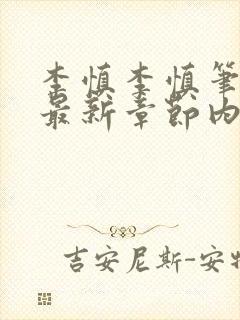 李慎李慎笔
最新章节内
吉安尼斯-安特